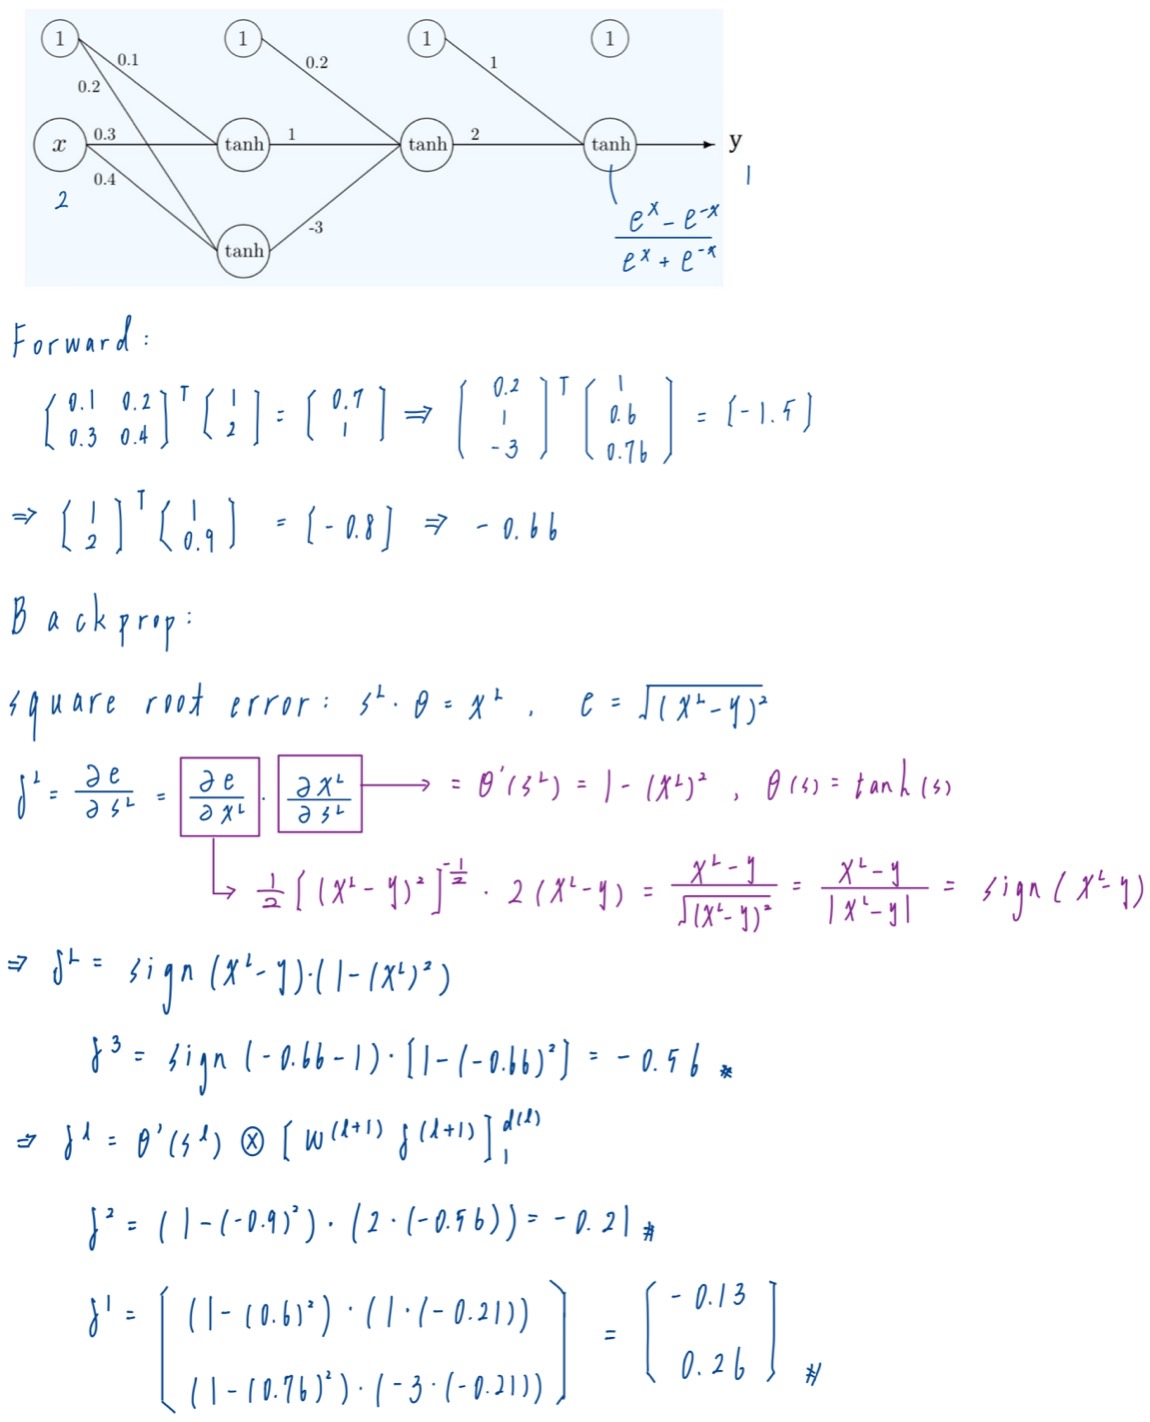 1 1 1 1
0.1 0.2 1
0.2
x 0.3 tanh 1 tanh 2 tanh y
0.4
2 1
-3
tanh
e^x - e^-x
e^x + e^-x
Forward:
[0.1 0.2 0.3 0.4]^T [1 2] = [0.7 1] ⇒ [0.2 1 -3]^T [1 0.6 0.76] = [-1.5]
⇒ [1 2]^T [1 0.9] = [-0.8] ⇒ -0.66
Backprop:
square root error: s^L · θ = x^L , e = √(x^L-y)²
δ^L = ∂e/∂s^L = ∂e/∂x^L · ∂x^L/∂s^L → = θ'(s^L) = 1-(x^L)² , θ(s) = tanh(s)
↳ 1/2 [(x^L-y)²]^-1/2 · 2(x^L-y) = (x^L-y)/√(x^L-y)² = (x^L-y)/|x^L-y| = sign(x^L-y)
⇒ δ^L = sign(x^L-y)·(1-(x^L)²)
δ³ = sign(-0.66-1)·[1-(-0.66)²] = -0.56 #
⇒ δ^l = θ'(s^l) ⊗ [w^(l+1) δ^(l+1)]_1^d(l)
δ² = (1-(-0.9)²)·(2·(-0.56)) = -0.21 #
δ¹ = [(1-(0.6)²)·(1·(-0.21)) (1-(0.76)²)·(-3·(-0.21))] = [-0.13 0.26] #